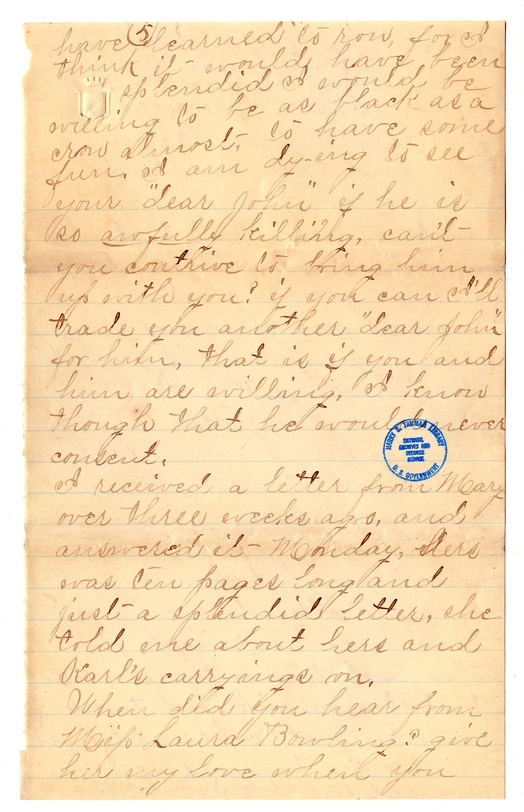 (5)
have learned to row, for I
think it would have been
splendid I would be
willing to be as black as a
crow almost, to have some
fun. I am dy-ing to see
your "dear John" if he is
so awfully killing, can't
you contrive to bring him
up with you? if you can I'll
trade you another "dear John"
for him, that is if you and
him are willing, I know
though that he would never
consent.
I received a letter from Mary
over three weeks ago, and
answered it Monday, Hers
was ten pages long and
just a splendid letter, she
told me about hers and
Karl's carryings on.
When did you hear from
Miss Laura Bowling? give
her my love when you
HARRY S. TRUMAN LIBRARY
NATIONAL
ARCHIVES AND
RECORDS
SERVICE
U. S. GOVERNMENT